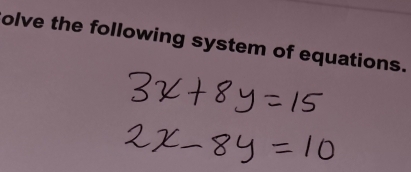 olve the following system of equations.
3x+8y=15
2x-8y=10